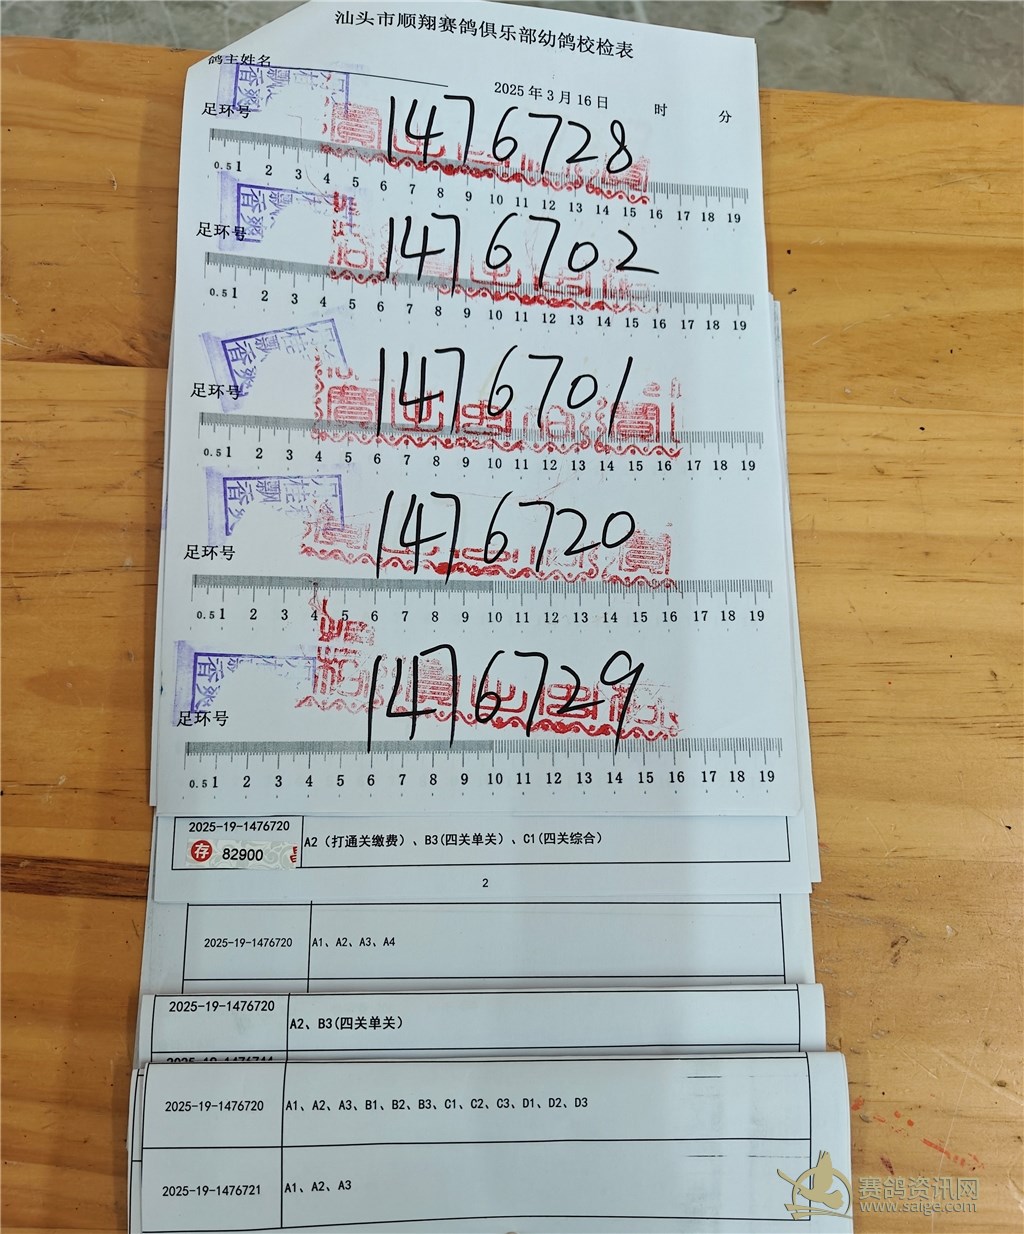 汕头市顺翔赛鸽俱乐部幼鸽校检表
鸽主姓名
2025 年 3 月 16 日 时 分
足环号
1476728
0.5 1 2 3 4 5 6 7 8 9 10 11 12 13 14 15 16 17 18 19
足环号
1476702
0.5 1 2 3 4 5 6 7 8 9 10 11 12 13 14 15 16 17 18 19
足环号
1476701
0.5 1 2 3 4 5 6 7 8 9 10 11 12 13 14 15 16 17 18 19
足环号
1476720
0.5 1 2 3 4 5 6 7 8 9 10 11 12 13 14 15 16 17 18 19
足环号
1476729
0.5 1 2 3 4 5 6 7 8 9 10 11 12 13 14 15 16 17 18 19
2025-19-1476720
存 82900
A2（打通关缴费）、B3(四关单关)、C1(四关综合)
2
2025-19-1476720 A1、A2、A3、A4
2025-19-1476720
A2、B3(四关单关)
2025-19-1476720 A1、A2、A3、B1、B2、B3、C1、C2、C3、D1、D2、D3
2025-19-1476721 A1、A2、A3
赛鸽资讯网
www.saige.com